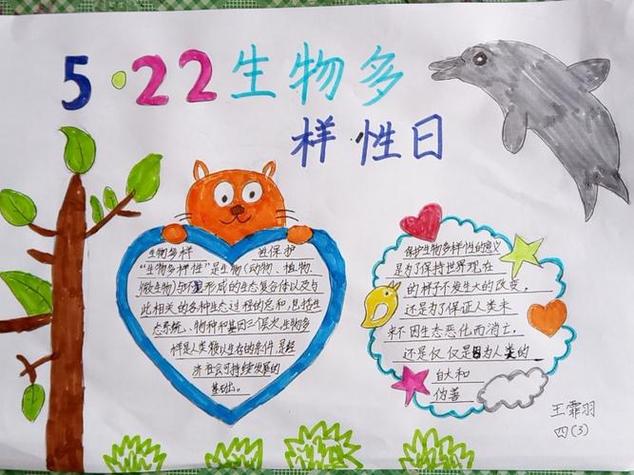 5·22生物多
样·性日
生物多样 性保护
"生物多样性"是生物(动物、植物、
微生物)与环境形成的生态复合体以及与
此相关的各种生态过程的总和,包括生
态系统、物种和基因三个层次,生物多
样是人类赖以生存的条件,是经
济社会可持续发展的
基础。
保护生物多样性的意义
是为了保持世界现在
的样子不发生大的改变。
还是为了保证人类未
来不因生态恶化而消亡。
还是仅仅是因为人类的
自大和
伪善
王霏羽
四(3)